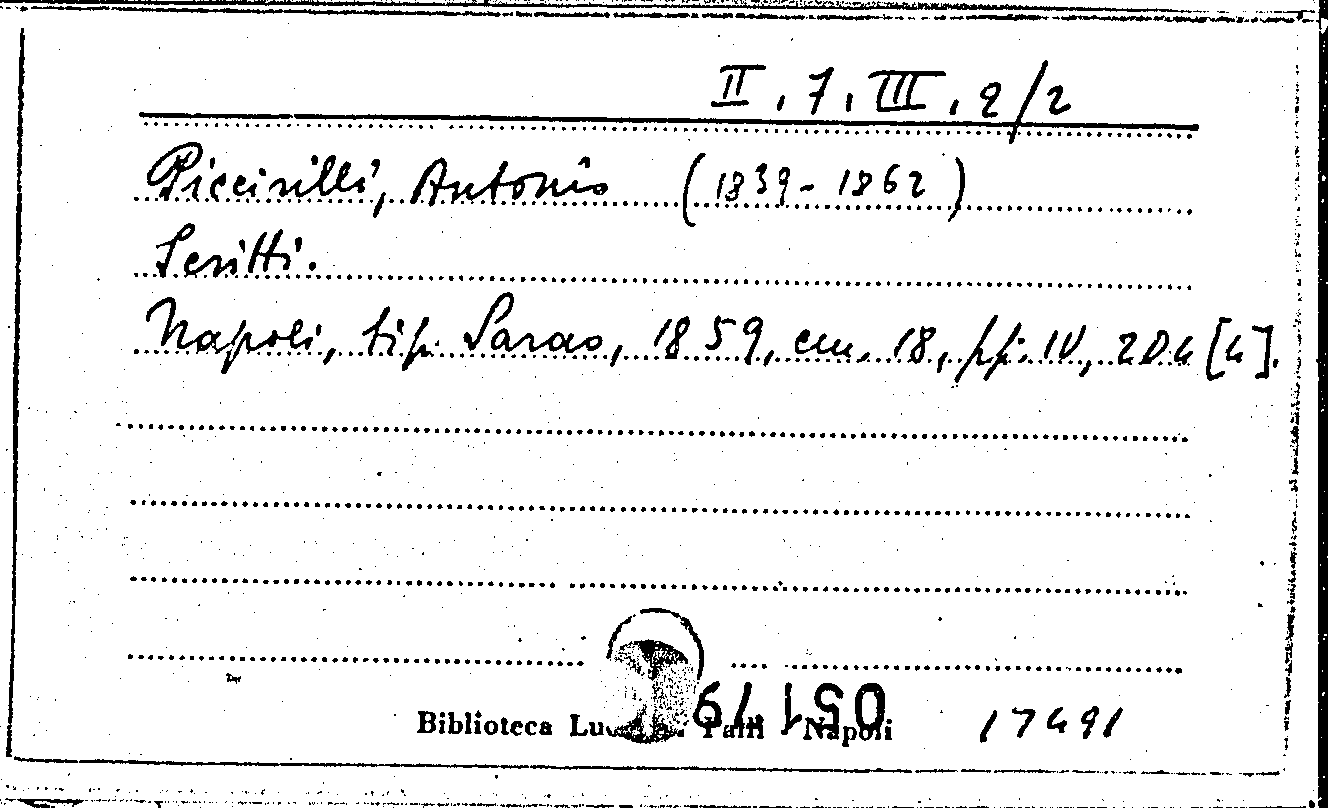 II. 7. III. 2/2
Piccirilli, Antonio (1839-1862)
Scritti.
Napoli, tip. Sarao, 1859, cm. 18, pp. IV, 204 [4].
Biblioteca Palli Napoli 17491